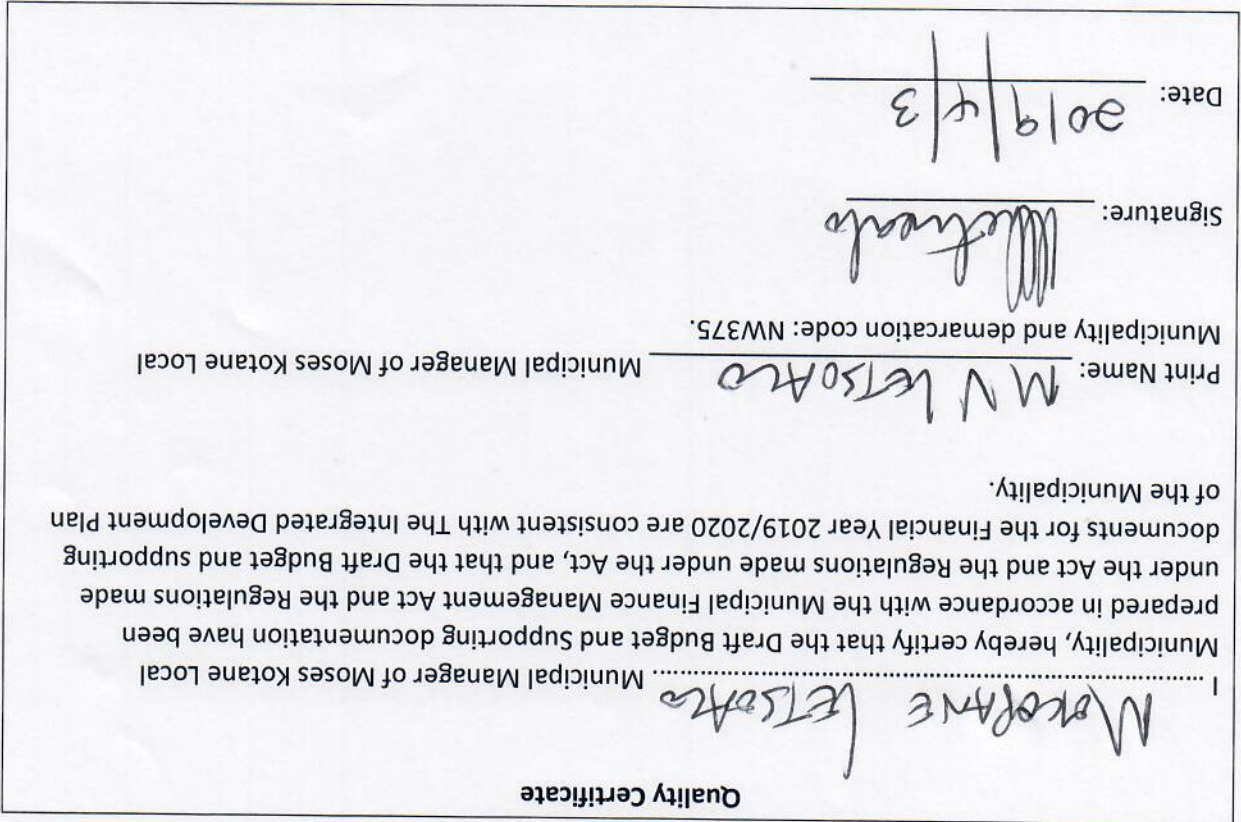 Quality Certificate
I MOKOPANE LETSOALO Municipal Manager of Moses Kotane Local
Municipality, hereby certify that the Draft Budget and Supporting documentation have been
prepared in accordance with the Municipal Finance Management Act and the Regulations made
under the Act and the Regulations made under the Act, and that the Draft Budget and supporting
documents for the Financial Year 2019/2020 are consistent with The Integrated Development Plan
of the Municipality.
Print Name: M V LETSOALO Municipal Manager of Moses Kotane Local
Municipality and demarcation code: NW375.
Signature:
Date: 2019/4/3